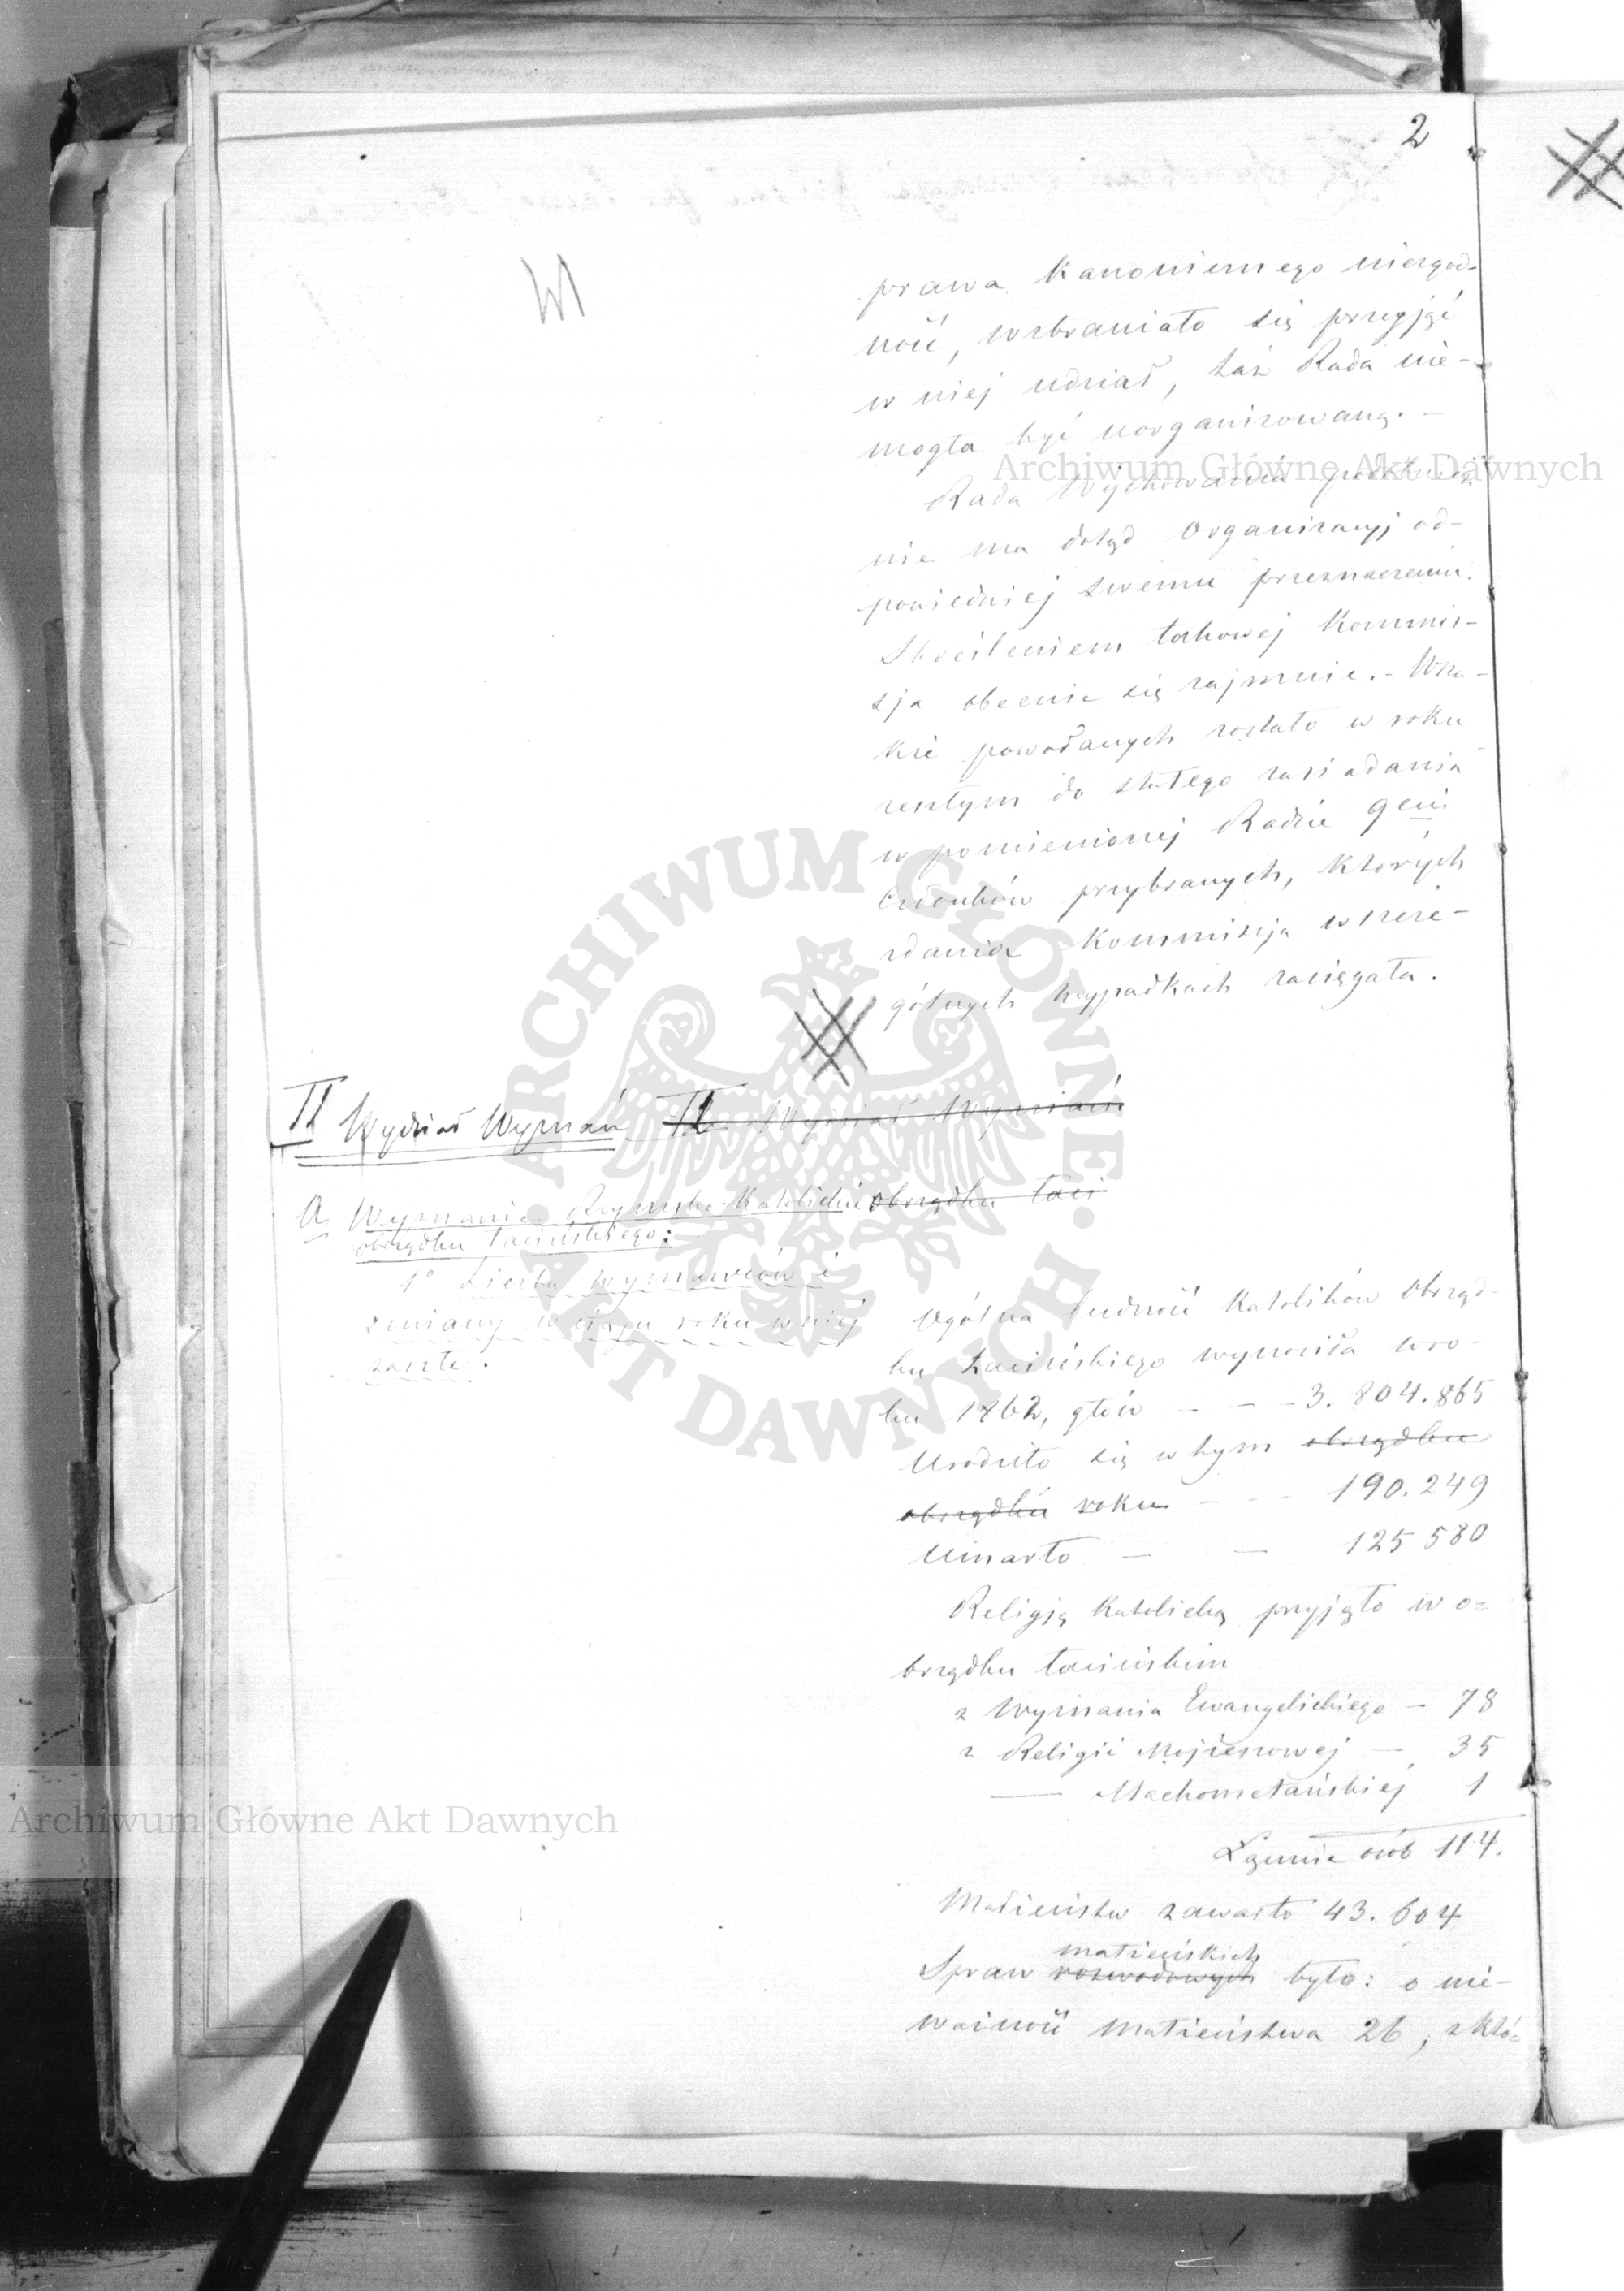 2
prawa Kanonicznego niezgod-
ność, wzbraniało się przyjąć
w niej udział, taż Rada nie-
mogła być uorganizowaną. -
Rada Wychowania
nie ma dotąd Organizacyj od-
powiedniej swemu przeznaczeniu.
Skreśleniem takowej Kommis-
sja obecnie się zajmuie. - Wsza-
kże powołanych zostało w roku
zeszłym do stałego zasiadania
w pomienionej Radzie 9ciu
Członków przybranych, których
zdania Kommissja w szcze-
gólnych wypadkach zasięgała.
II Wydział Wyznań II Wydział Wyznań
A Wyznanie Rzymsko-Katolickie obrządku łaci
obrządku łacińskiego:
1º Liczba wyznawców i
zmiany w ciągu roku w niej
zaszłe.
Ogólna ludność Katolików Obrząd-
ku Łacińskiego wynosiła w ro-
ku 1862, głów - - - 3.804.865
Urodziło się w tym obrządku
obrządku roku - - - 190.249
Umarło - - 125 580
Religją Katolicką przyjęło w o=
brządku łacińskim
z Wyznania Ewangelickiego - 78
z Religii Mojżeszowej - 35
— Machometańskiej 1
Łącznie osób 114.
Małżeństw zawarto 43.604
małżeńskich
Spraw rozwodowych było: o nie-
ważność małżeństwa 26, z któ=
Archiwum Główne Akt Dawnych
Archiwum Główne Akt Dawnych
ARCHIWUM GŁÓWNE AKT DAWNYCH